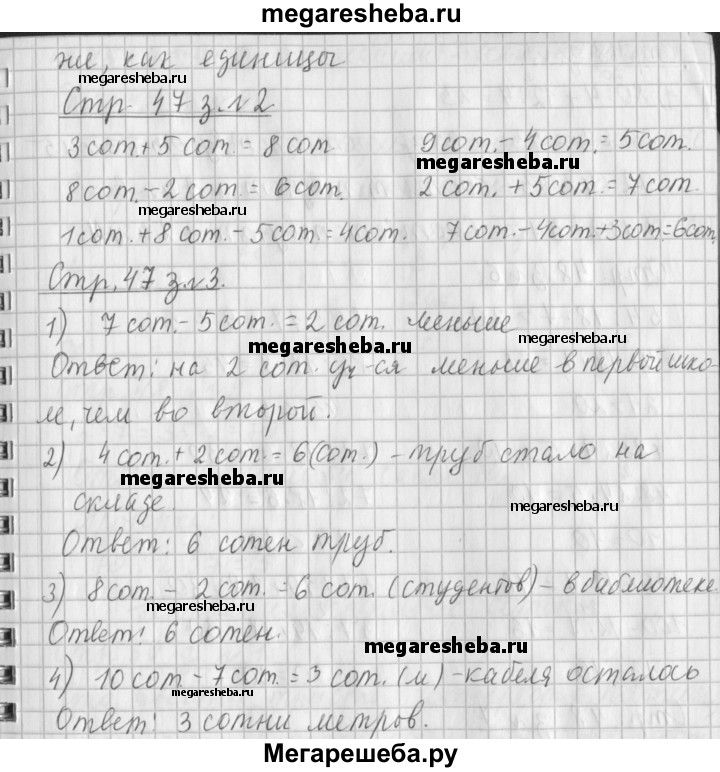 megaresheba.ru
же, как единицы
megaresheba.ru
Стр. 47 з.№2
3 сот.+ 5 сот. = 8 сот 9 сот.- 4 сот. = 5 сот.
megaresheba.ru
8 сот.- 2 сот. = 6 сот. 2 сот. + 5 сот. = 7 сот.
megaresheba.ru
1 сот.+ 8 сот. - 5 сот. = 4 сот. 7 сот.- 4 сот.+3 сот=6 сот,
Стр. 47 з.№3.
1) 7 сот.- 5 сот. = 2 сот. меньше
megaresheba.ru megaresheba.ru
Ответ: на 2 сот. уч-ся меньше в первой шко-
ле, чем во второй.
2) 4 сот.+ 2 сот. = 6 (сот.) - труб стало на
megaresheba.ru
складе.
megaresheba.ru
Ответ: 6 сотен труб.
3) 8 сот. - 2 сот. = 6 сот. (студентов) - в библиотеке.
megaresheba.ru
Ответ: 6 сотен.
megaresheba.ru
4) 10 сот - 7 сот. = 3 сот. (м) - кабеля осталось
megaresheba.ru
Ответ: 3 сотни метров.
Мегарешеба.ру